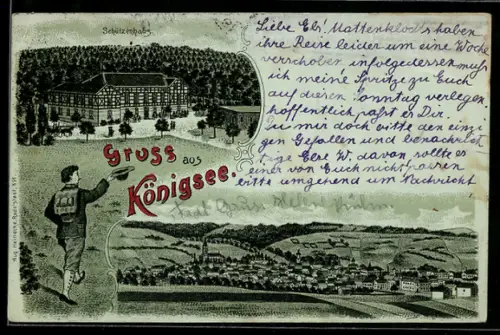 Schützenhaus.
Liebe Els! Mattenklodts haben
ihre Reise leider um eine Woche
verschoben, infolgedessen muß
ich meine Spritze zu Euch
auf diesen Sonntag verlegen,
hoffentlich paßt es Dir.
Tu mir doch bitte den einzi
gen Gefallen und benachrich
tige Else W. davon, sollte es
einer von Euch nicht passen
bitte umgehend um Nachricht
Gruss aus
Königsee.